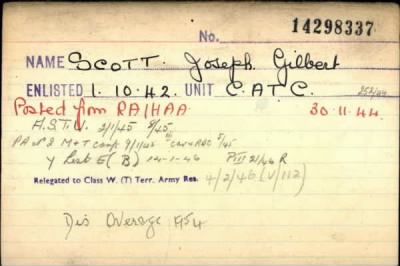 No. 14298337
NAME SCOTT. Joseph Gilbert
ENLISTED 1.10.42. UNIT C.A.T.C.
Posted from RA/HAA 30.11.44.
A.S.T.U. 2/1/45 5/45
M+T Camp 9/1/45 5/45
Y List E(B) 14-1-46 21/46 R
Relegated to Class W. (T) Terr. Army Res. 4/2/46 (V/112)
Dis Overage 1954